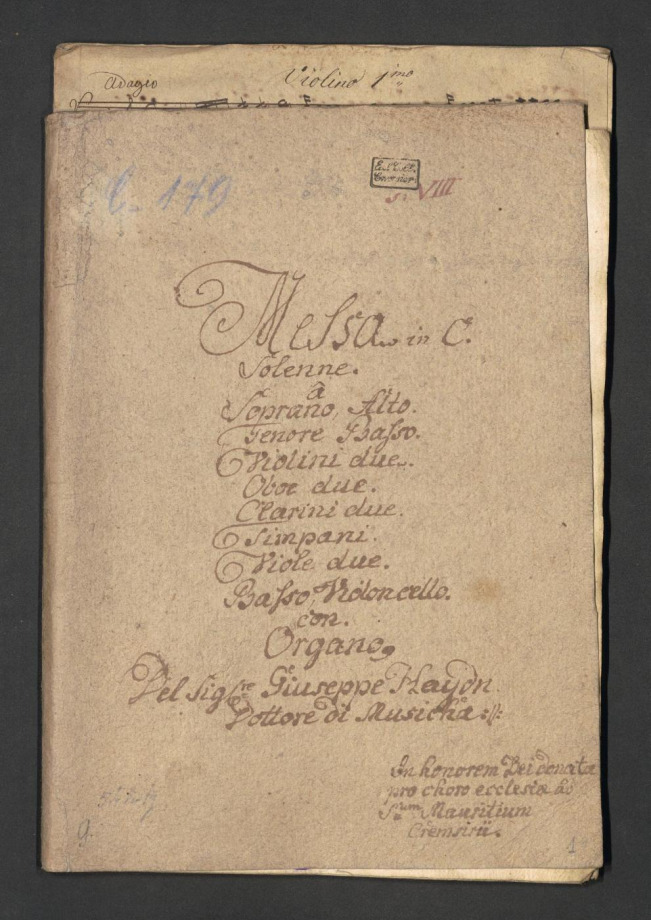 Adagio
Violino 1mo
C. 179
VIII
Messa in C.
Solenne.
à
Soprano, Alto.
Tenore Basso.
Violini due.
Oboe due.
Clarini due.
Timpani.
Viole due.
Basso, Violoncello.
con.
Organo,
Del Sigre Giuseppe Haydn
Dottore di Musicha:||:
In honorem Dei donata
pro choro ecclesiæ ad
Sum Mauritium
Cremsirii.
9.
1